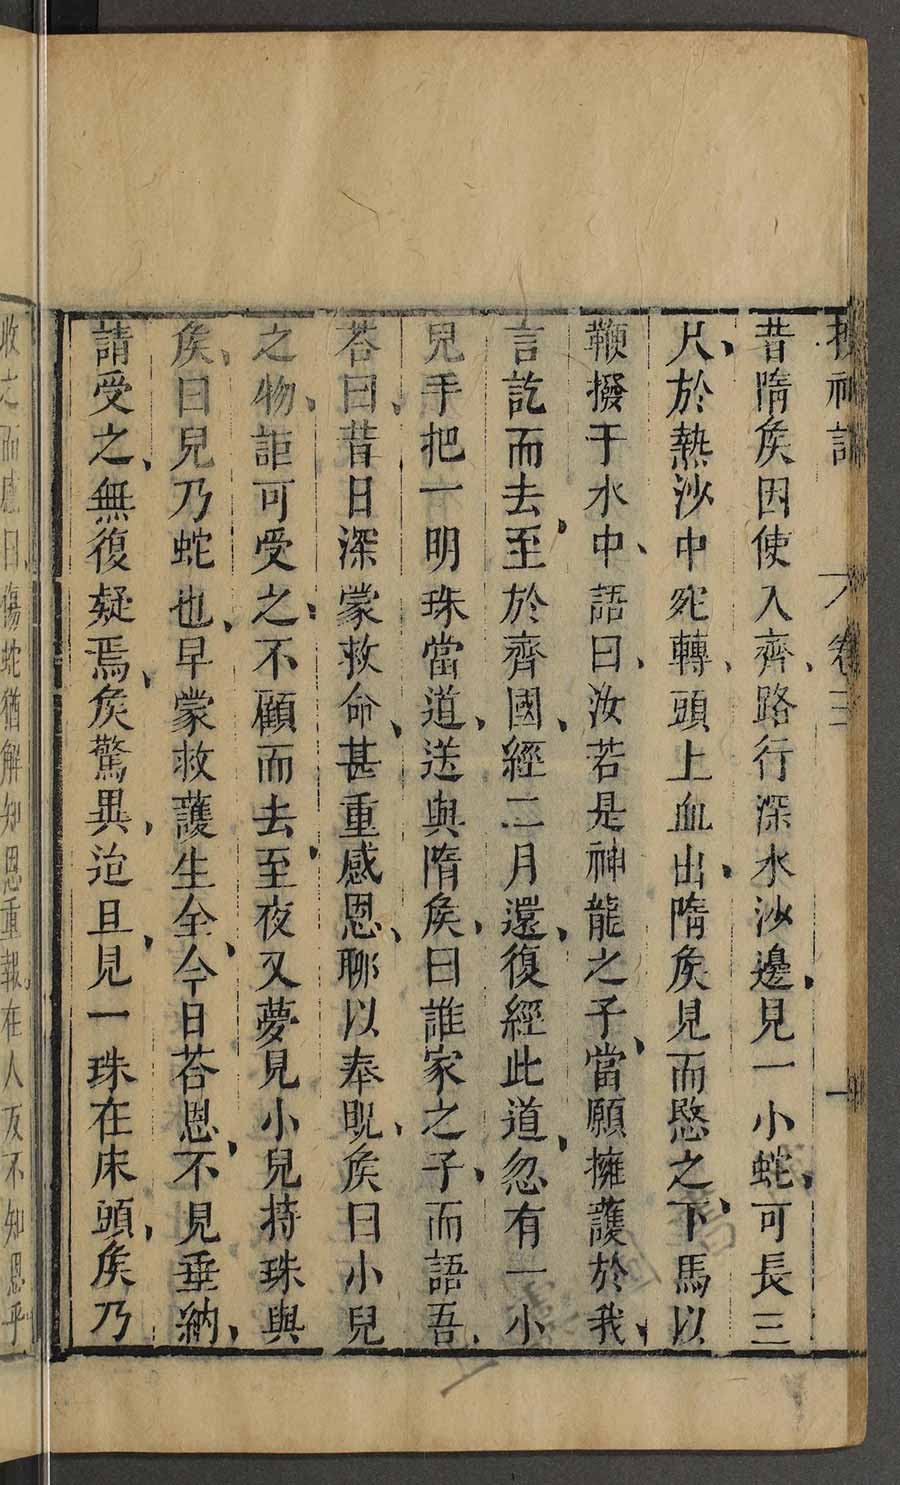 搜神記 八卷三 一
昔隋矦因使入齊、路行深水沙邊、見一小蛇、可長三
尺、於熱沙中宛轉、頭上血出、隋矦見而愍之、下馬以
鞭撥于水中、語曰、汝若是神龍之子、當願擁護於我、
言訖而去、至於齊國、經二月還、復經此道、忽有一小
兒手把一明珠當道、送與隋矦、曰誰家之子、而語吾、
荅曰、昔日深蒙救命、甚重感恩、聊以奉貺、矦曰小兒
之物、詎可受之、不顧而去、至夜又夢見小兒持珠與
矦、曰兒乃蛇也、早蒙救護生全、今日荅恩、不見垂納、
請受之、無復疑焉、矦驚異、迨旦、見一珠在床頭、矦乃
收之而感曰傷蛇猶解知恩重報在人反不知恩乎